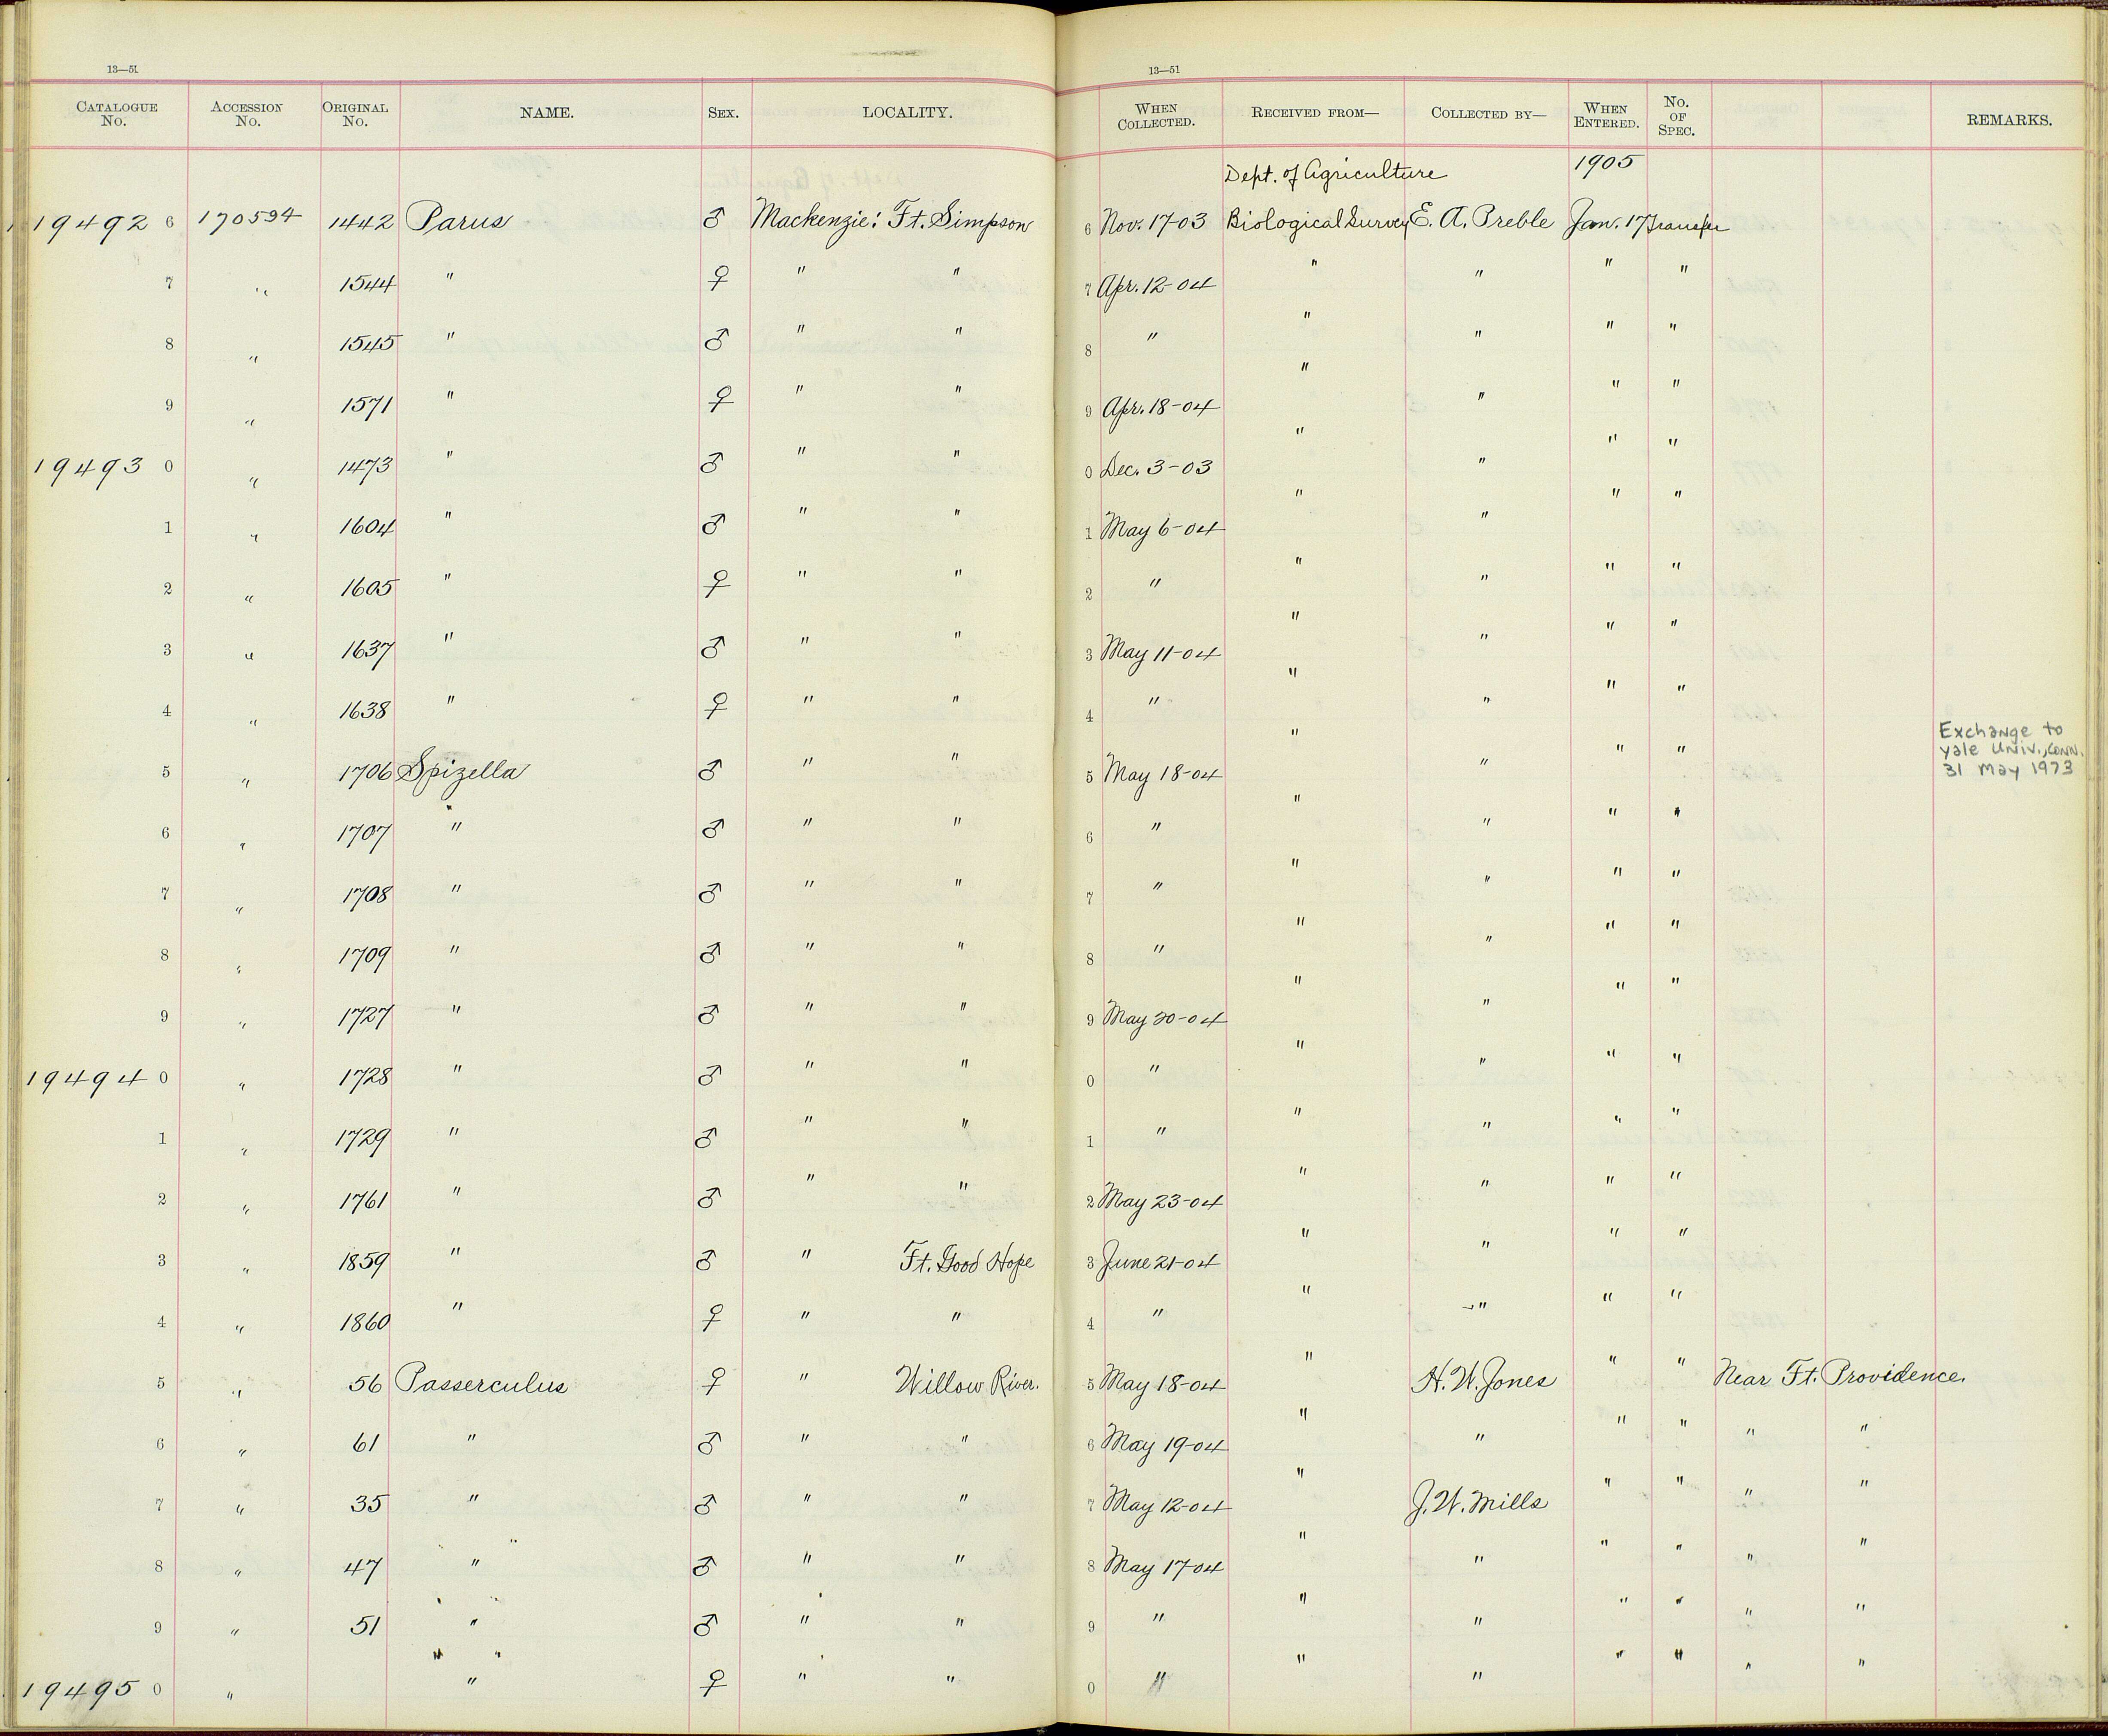 13—51
13—51
CATALOGUE No. ACCESSION No. ORIGINAL No. NAME. SEX. LOCALITY. WHEN COLLECTED. RECEIVED FROM— COLLECTED BY— WHEN ENTERED. No. OF SPEC. REMARKS.
Dept. of Agriculture 1905
19492 6 170594 1442 Parus ♂ Mackenzie: Ft. Simpson 6 Nov. 17-03 Biological Survey E. A. Preble Jan. 17 Transfer
7 " 1544 " ♀ " " 7 Apr. 12-04 " " " "
8 " 1545 " ♂ " " 8 " " " " "
9 " 1571 " ♀ " " 9 Apr. 18-04 " " " "
19493 0 " 1473 " ♂ " " 0 Dec. 3-03 " " " "
1 " 1604 " ♂ " " 1 May 6-04 " " " "
2 " 1605 " ♀ " " 2 " " " " "
3 " 1637 " ♂ " " 3 May 11-04 " " " "
4 " 1638 " ♀ " " 4 " " " " "
5 " 1706 Spizella ♂ " " 5 May 18-04 " " " " Exchange to Yale Univ., Conn. 31 May 1973
6 " 1707 " ♂ " " 6 " " " " "
7 " 1708 " ♂ " " 7 " " " " "
8 " 1709 " ♂ " " 8 " " " " "
9 " 1727 " ♂ " " 9 May 20-04 " " " "
19494 0 " 1728 " ♂ " " 0 " " " " "
1 " 1729 " ♂ " " 1 " " " " "
2 " 1761 " ♂ " " 2 May 23-04 " " " "
3 " 1859 " ♂ " Ft. Good Hope 3 June 21-04 " " " "
4 " 1860 " ♀ " " 4 " " " " "
5 " 56 Passerculus ♀ " Willow River. 5 May 18-04 " H. W. Jones " " Near Ft. Providence.
6 " 61 " ♂ " " 6 May 19-04 " " " " " "
7 " 35 " ♂ " " 7 May 12-04 " J. W. Mills " " " "
8 " 47 " ♂ " " 8 May 17-04 " " " " " "
9 " 51 " ♂ " " 9 " " " " " " "
19495 0 " " ♀ " " 0 " " " " " " "